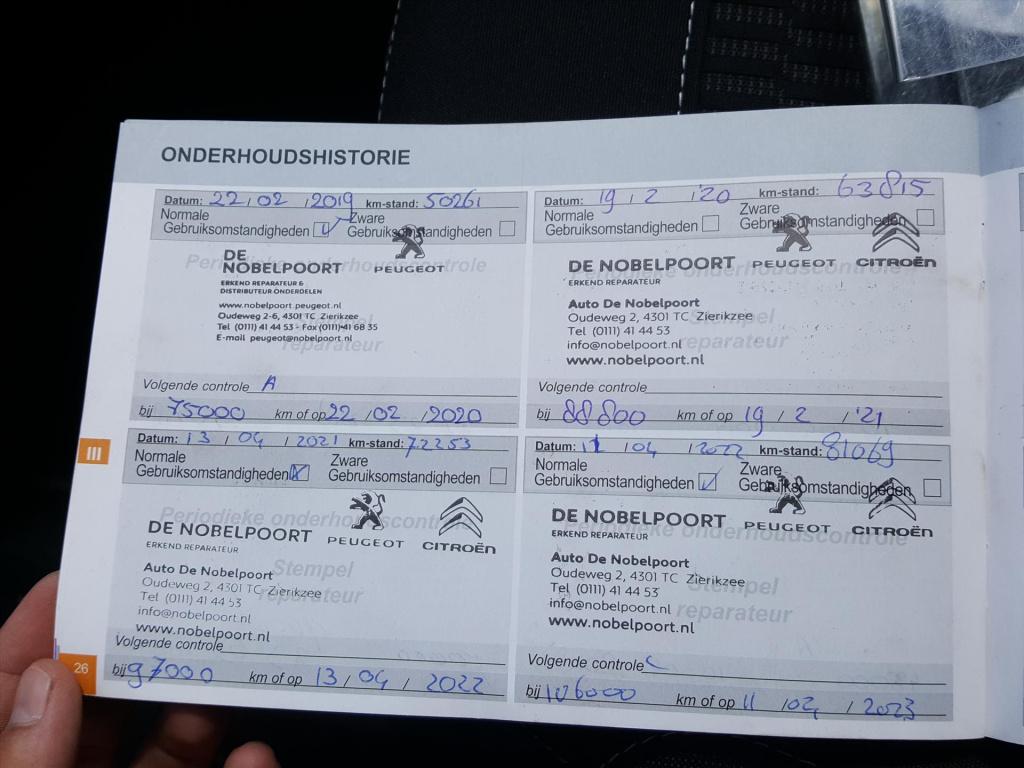 ONDERHOUDSHISTORIE
Datum: 22 / 02 / 2019 km-stand: 50261
Normale Gebruiksomstandigheden Zware Gebruiksomstandigheden
Periodieke onderhoudscontrole
DE NOBELPOORT PEUGEOT
ERKEND REPARATEUR &
DISTRIBUTEUR ONDERDELEN
www.nobelpoort.peugeot.nl
Oudeweg 2-6, 4301 TC Zierikzee
Tel (0111) 41 44 53 - Fax (0111) 41 68 35
E-mail peugeot@nobelpoort.nl
Stempel
reparateur
Volgende controle A
bij 75000 km of op 22 / 02 / 2020
Datum: 19 / 2 / '20 km-stand: 63815
Normale Gebruiksomstandigheden Zware Gebruiksomstandigheden
Periodieke onderhoudscontrole
DE NOBELPOORT PEUGEOT CITROËN
ERKEND REPARATEUR
Auto De Nobelpoort
Oudeweg 2, 4301 TC Zierikzee
Tel (0111) 41 44 53
info@nobelpoort.nl
www.nobelpoort.nl
Stempel
reparateur
Volgende controle
bij 88800 km of op 19 / 2 / '21
III
Datum: 13 / 04 / 2021 km-stand: 72253
Normale Gebruiksomstandigheden Zware Gebruiksomstandigheden
Periodieke onderhoudscontrole
DE NOBELPOORT PEUGEOT CITROËN
ERKEND REPARATEUR
Auto De Nobelpoort
Oudeweg 2, 4301 TC Zierikzee
Tel (0111) 41 44 53
info@nobelpoort.nl
www.nobelpoort.nl
Stempel
reparateur
Volgende controle
bij 97000 km of op 13 / 04 / 2022
Datum: 11 / 04 / 2022 km-stand: 81069
Normale Gebruiksomstandigheden Zware Gebruiksomstandigheden
Periodieke onderhoudscontrole
DE NOBELPOORT PEUGEOT CITROËN
ERKEND REPARATEUR
Auto De Nobelpoort
Oudeweg 2, 4301 TC Zierikzee
Tel (0111) 41 44 53
info@nobelpoort.nl
www.nobelpoort.nl
Stempel
reparateur
Volgende controle C
bij 106000 km of op 11 / 04 / 2023
26